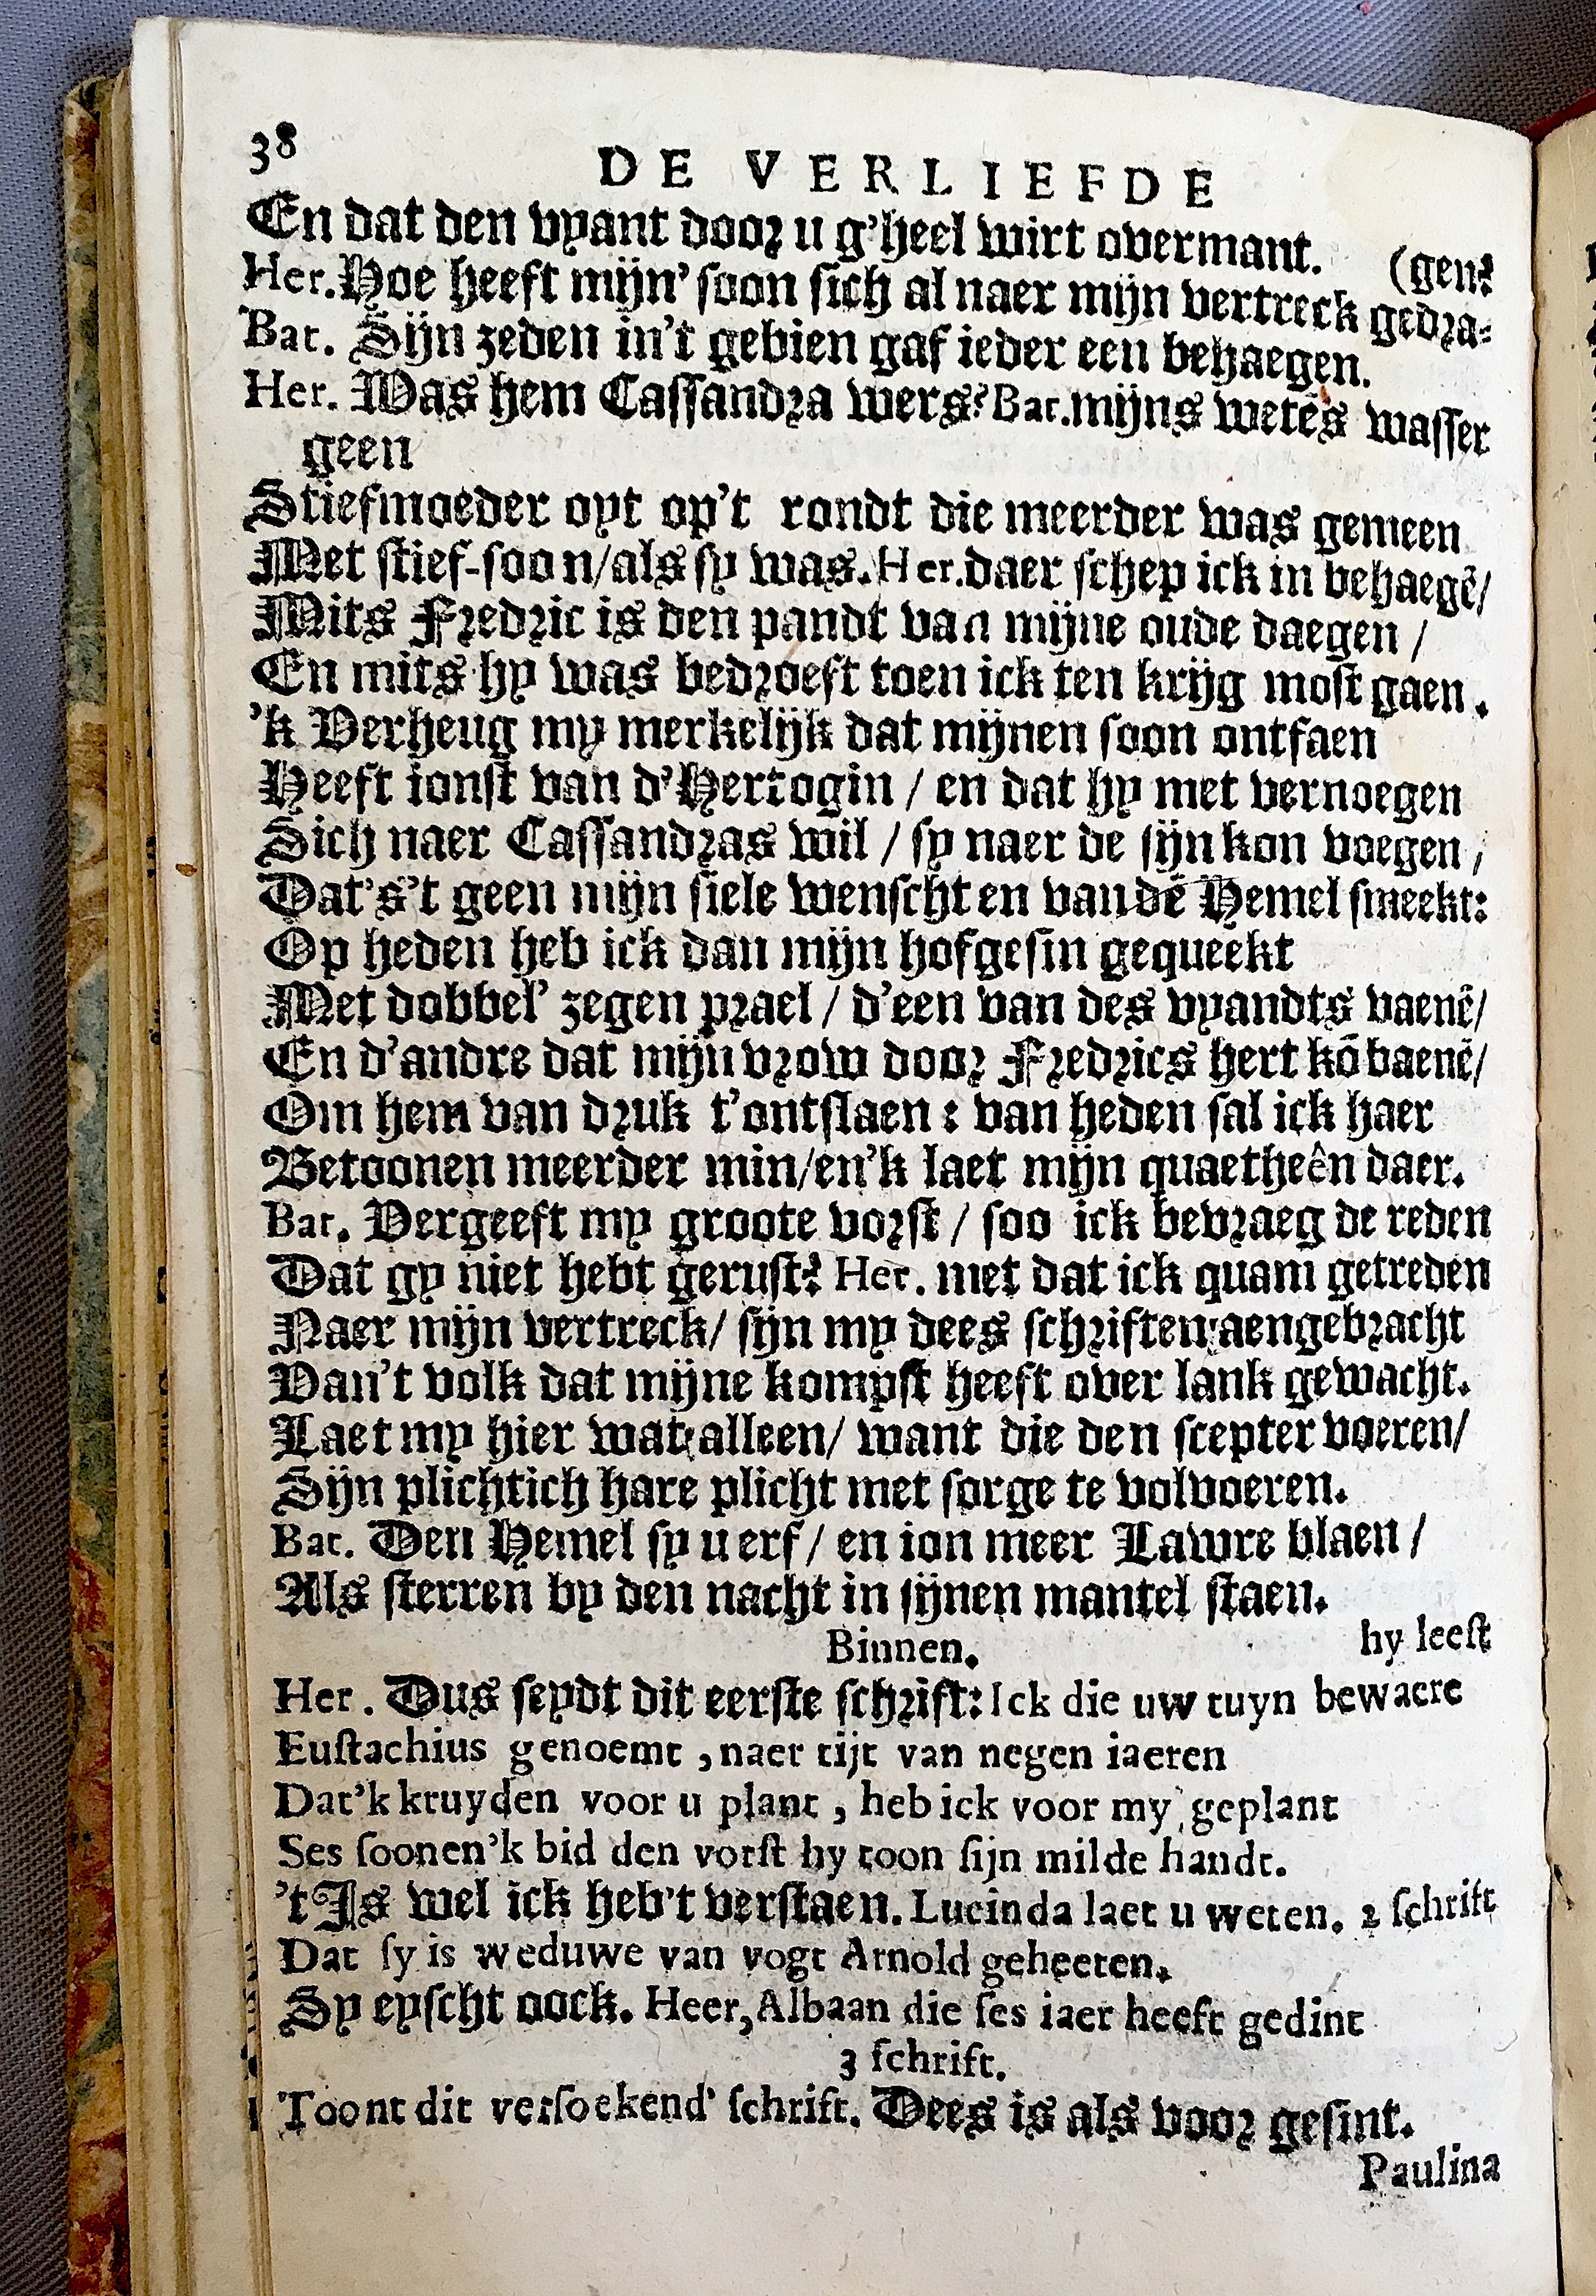 38
DE VERLIEFDE
En dat den vyant door u g'heel wirt overmant.
(gen?
Her. Hoe heeft mijn' soon sich al naer mijn vertreck gedra-
Bat. Sijn zeden in't gebien gaf ieder een behaegen.
Her. Was hem Cassandra wers? Bat. mijns wetēs wasser
geen
Stiefmoeder oyt op't rondt die meerder was gemeen
Met stief-soon/als sy was. Her. daer schep ick in behaegē/
Mits Fredric is den pandt van mijne oude daegen /
En mits hy was bedroeft toen ick ten krijg most gaen.
'k Verheug my merkelijk dat mijnen soon ontfaen
Heeft ionst van d'Hertogin / en dat hy met vernoegen
Sich naer Cassandras wil / sy naer de sijn kon voegen,
Dat's't geen mijn siele wenscht en van dē Hemel smeekt:
Op heden heb ick dan mijn hofgesin gequeekt
Met dobbel' zegen prael / d'een van des vyandts vaenē/
En d'andre dat mijn vrow door Fredrics hert kō baenē/
Om hem van druk t'ontslaen : van heden sal ick haer
Betoonen meerder min/en'k laet mijn quaetheên daer.
Bat. Vergeeft my groote vorst / soo ick bevraeg de reden
Dat gy niet hebt gerust? Her. met dat ick quam getreden
Naer mijn vertreck/ sijn my dees schriften aengebracht
Van't volk dat mijne kompst heeft over lank gewacht.
Laet my hier wat alleen/ want die den scepter voeren/
Sijn plichtich hare plicht met sorge te volvoeren.
Bat. Den Hemel sy u erf / en ion meer Lawre blaen /
Als sterren by den nacht in sijnen mantel staen.
Binnen. hy leest
Her. Dus seydt dit eerste schrift: Ick die uw tuyn bewaere
Eustachius genoemt , naer tijt van negen iaeren
Dat'k kruyden voor u plant , heb ick voor my geplant
Ses soonen'k bid den vorst hy toon sijn milde handt.
't Is wel ick heb't verstaen. Lucinda laet u weten. 2 schrift
Dat sy is weduwe van vogt Arnold geheeten.
Sy eyscht oock. Heer, Albaan die ses iaer heeft gedint
3 schrift.
Toont dit versoekend' schrift. Dees is als voor gesint.
Paulina